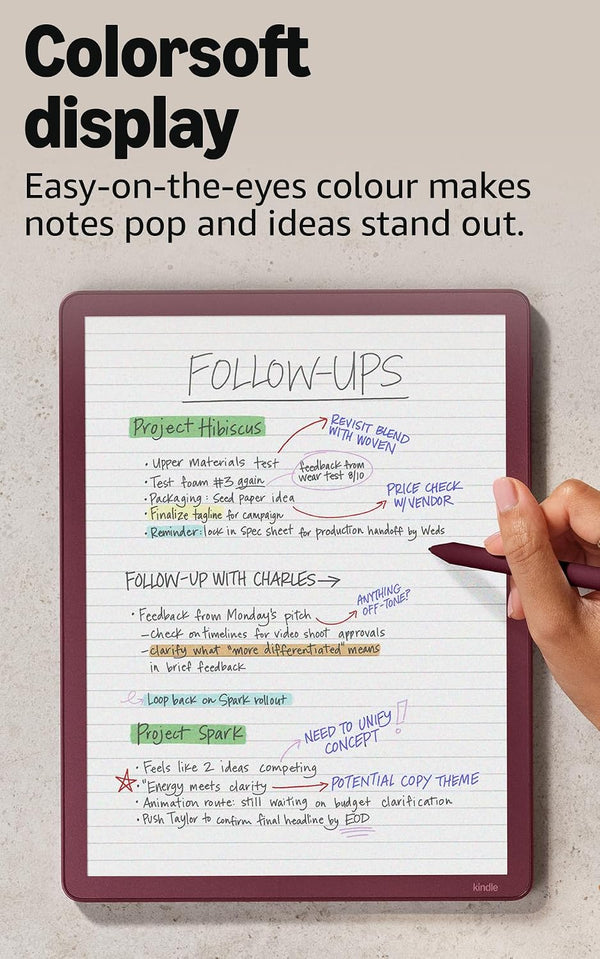 Colorsoft
display
Easy-on-the-eyes colour makes
notes pop and ideas stand out.
FOLLOW-UPS
Project Hibiscus
REVISIT BLEND
WITH WOVEN
• Upper Materials test
• Test foam #3 again
feedback from
wear test 8/10
• Packaging: Seed paper idea
PRICE CHECK
W/VENDOR
• Finalize tagline for campaign
• Reminder: lock in spec sheet for production handoff by Weds
FOLLOW-UP WITH CHARLES→
ANYTHING
OFF-TONE?
• Feedback from Monday's pitch
–check on timelines for video shoot approvals
–clarify what "more differentiated" means
in brief feedback
Loop back on Spark rollout
Project Spark
NEED TO UNIFY
CONCEPT!
• Feels like 2 ideas competing
• "Energy meets clarity → POTENTIAL COPY THEME
• Animation route: still waiting on budget clarification
• Push Taylor to confirm final headline by EOD
kindle